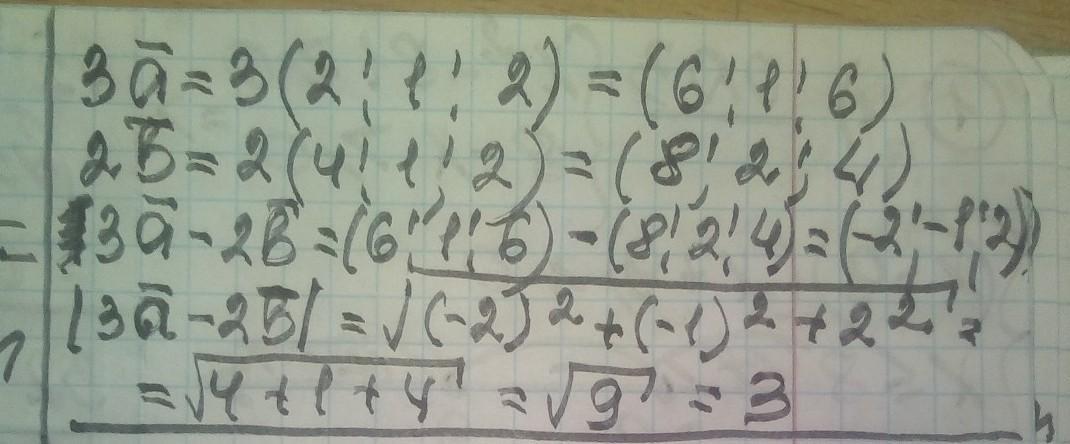 3ā = 3(2; 1; 2) = (6; 1; 6)
2b̄ = 2(4; 1; 2) = (8; 2; 4)
3ā - 2b̄ = (6; 1; 6) - (8; 2; 4) = (-2; -1; 2)
|3ā - 2b̄| = √(-2)² + (-1)² + 2² =
= √4 + 1 + 4 = √9 = 3